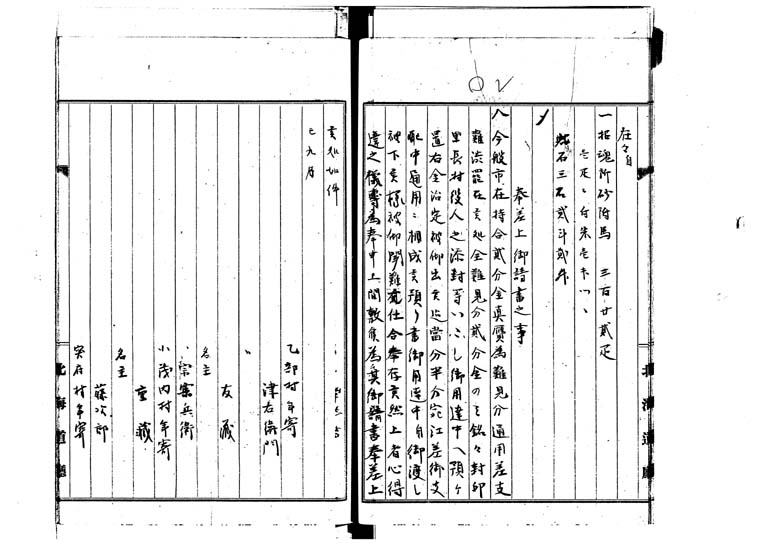 在々自
一招魂所砂附馬 三百廿貳疋
壱疋ニ付朱壱朱ツヽ
玄石三石貳斗貳升
奉差上御請書之事
八今般市在持合貳分金真贋為難見分通用差支
難渋罷在候処全難見分貳分金のミ銘々封印
里長村役人之添封等いたし御用達中へ預ケ
置右金治定被仰出候迄當分半分宛江差御支
配中通用ニ相成候預り書御用達中自御渡し
被下候様被仰聞難有仕合奉存候然上者心得
違之儀等為奉申上間敷候為其御請書奉差上
候処如件
巳九月
乙部村年寄
津右衛門
友蔵
名主
宗兵衛
小茂内村年寄
重蔵
名主
藤次郎
突府村年寄
北海道廳
北海道廳